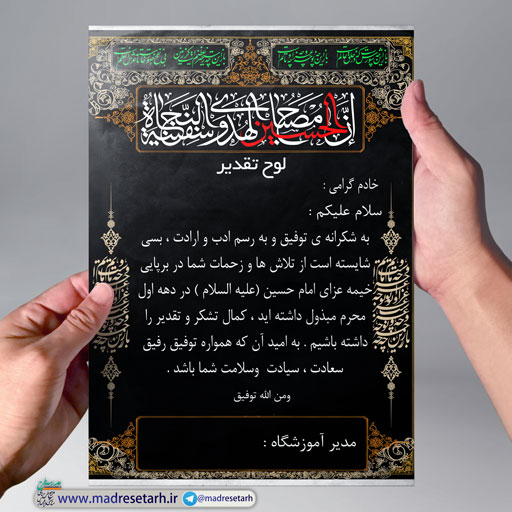 إنّ الحسین مصباح الهدی و سفینة النجاة
لوح تقدیر
خادم گرامی :
سلام علیکم :
به شکرانه ی توفیق و به رسم ادب و ارادت ، بسی
شایسته است از تلاش ها و زحمات شما در برپایی
خیمه عزای امام حسین (علیه السلام ) در دهه اول
محرم مبذول داشته اید ، کمال تشکر و تقدیر را
داشته باشیم . به امید آن که همواره توفیق رفیق
سعادت ، سیادت وسلامت شما باشد .
ومن الله توفیق
مدیر آموزشگاه :
www.madresetarh.ir @madresetarh